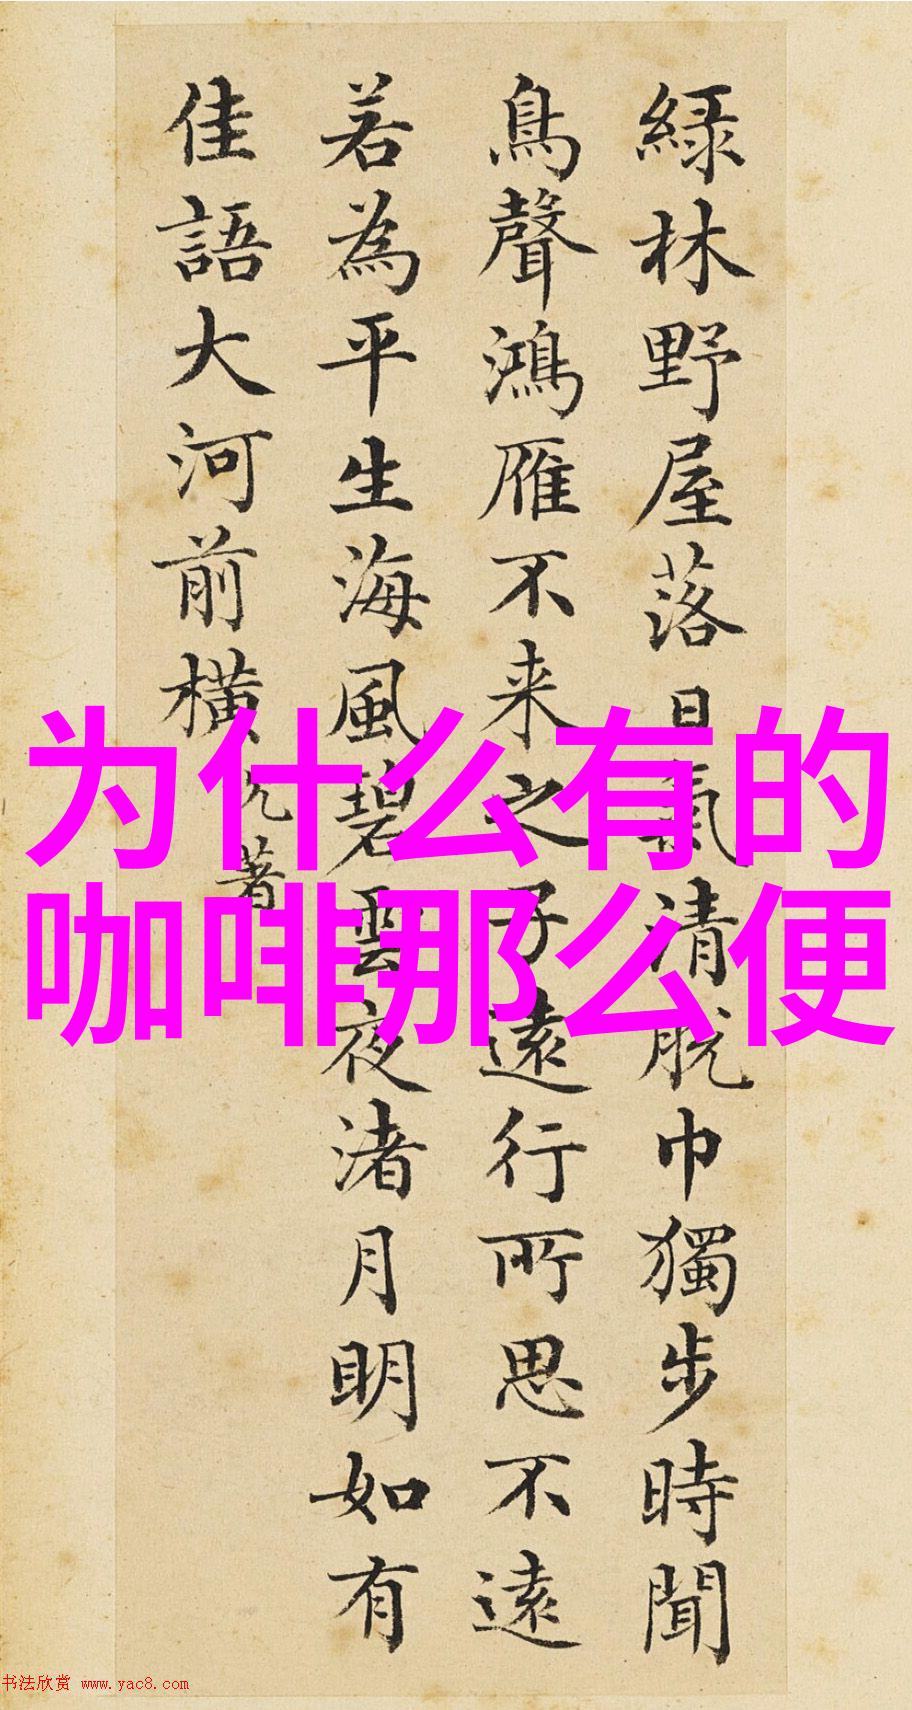 綠林野屋落日氣清脫巾獨步時聞
鳥聲鴻雁不来之子遠行所思不遠
若為平生海風碧雲夜渚月明如有
佳語大河前橫
著
为什么有的
咖啡那么便
书法欣赏 www.yac8.com